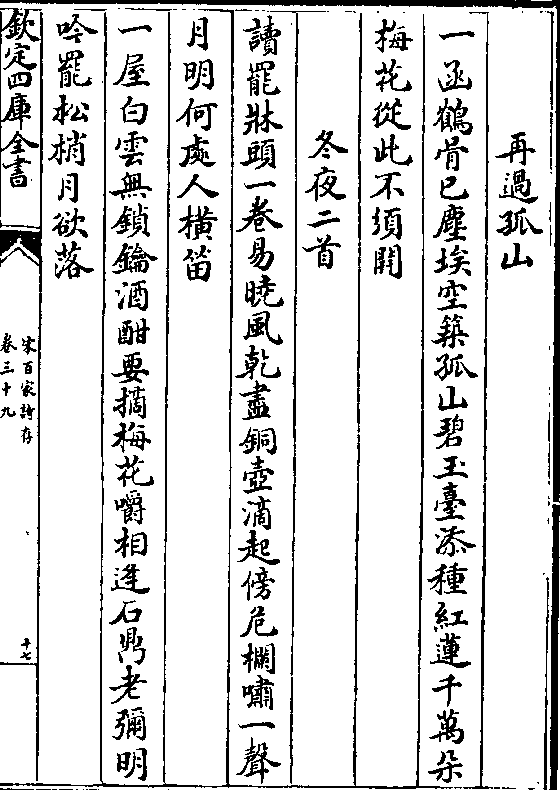 再過孤山
一函鶴骨已塵埃空築孤山碧玉臺添種紅蓮千萬朵
梅花從此不須開
冬夜二首
讀罷牀頭一巻易曉風乾盡銅壺滴起傍危欄嘯一聲
月明何處人横笛
一屋白雲無鎖鑰酒酣要摘梅花嚼相逢石鼎老彌明
吟罷松梢月欲落
欽定四庫全書
宋百家詩存
卷三十九
十七